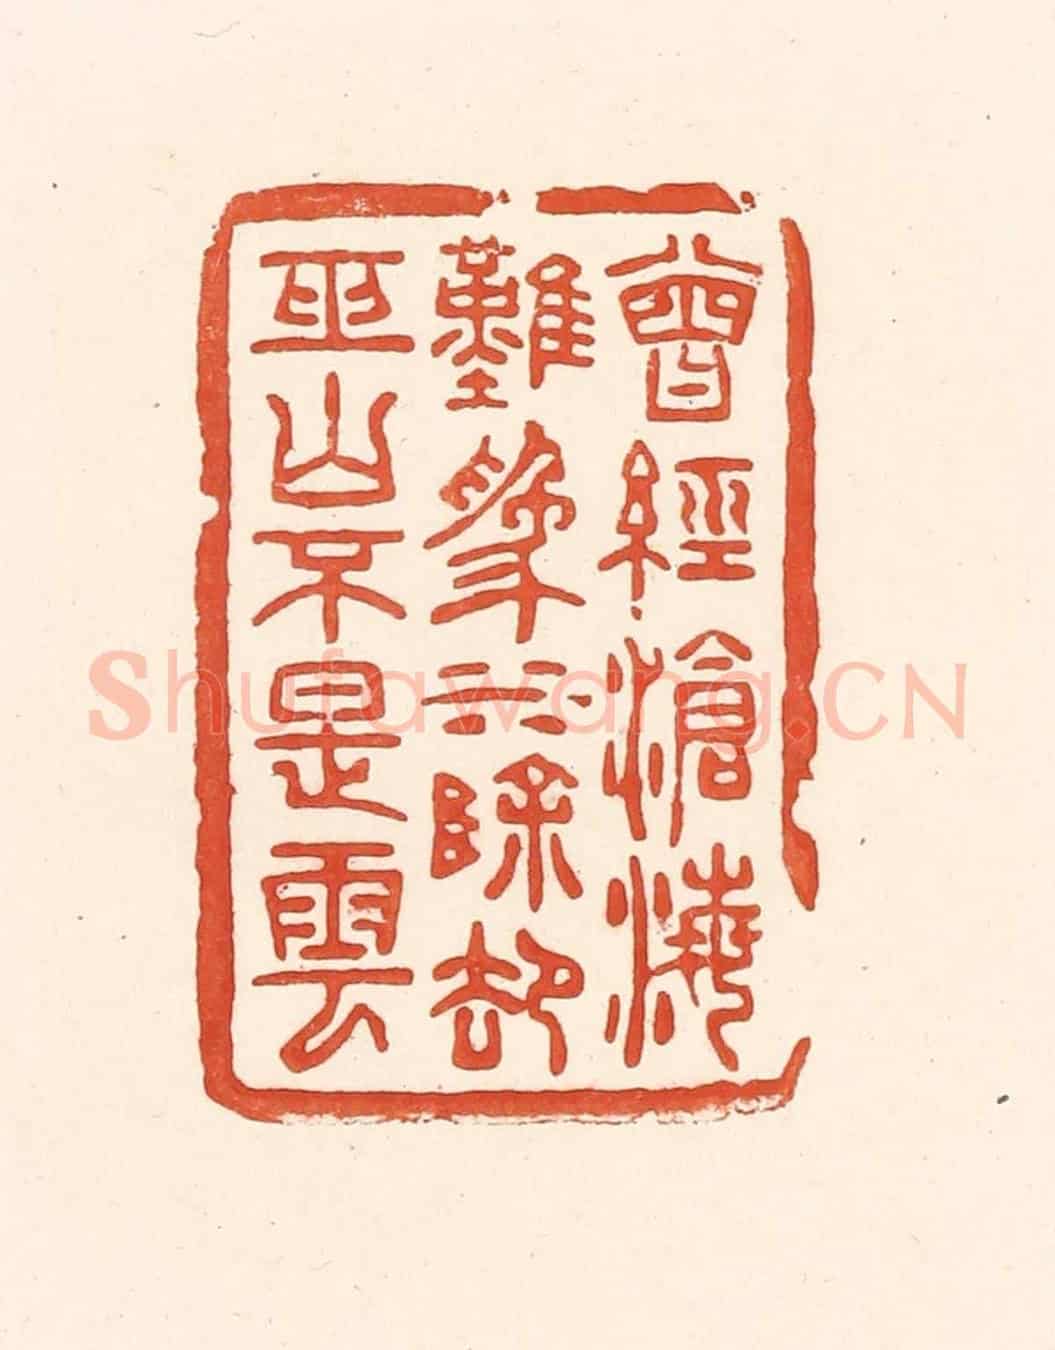 曾經滄海
難為水除卻
巫山不是雲
Shufawang.CN